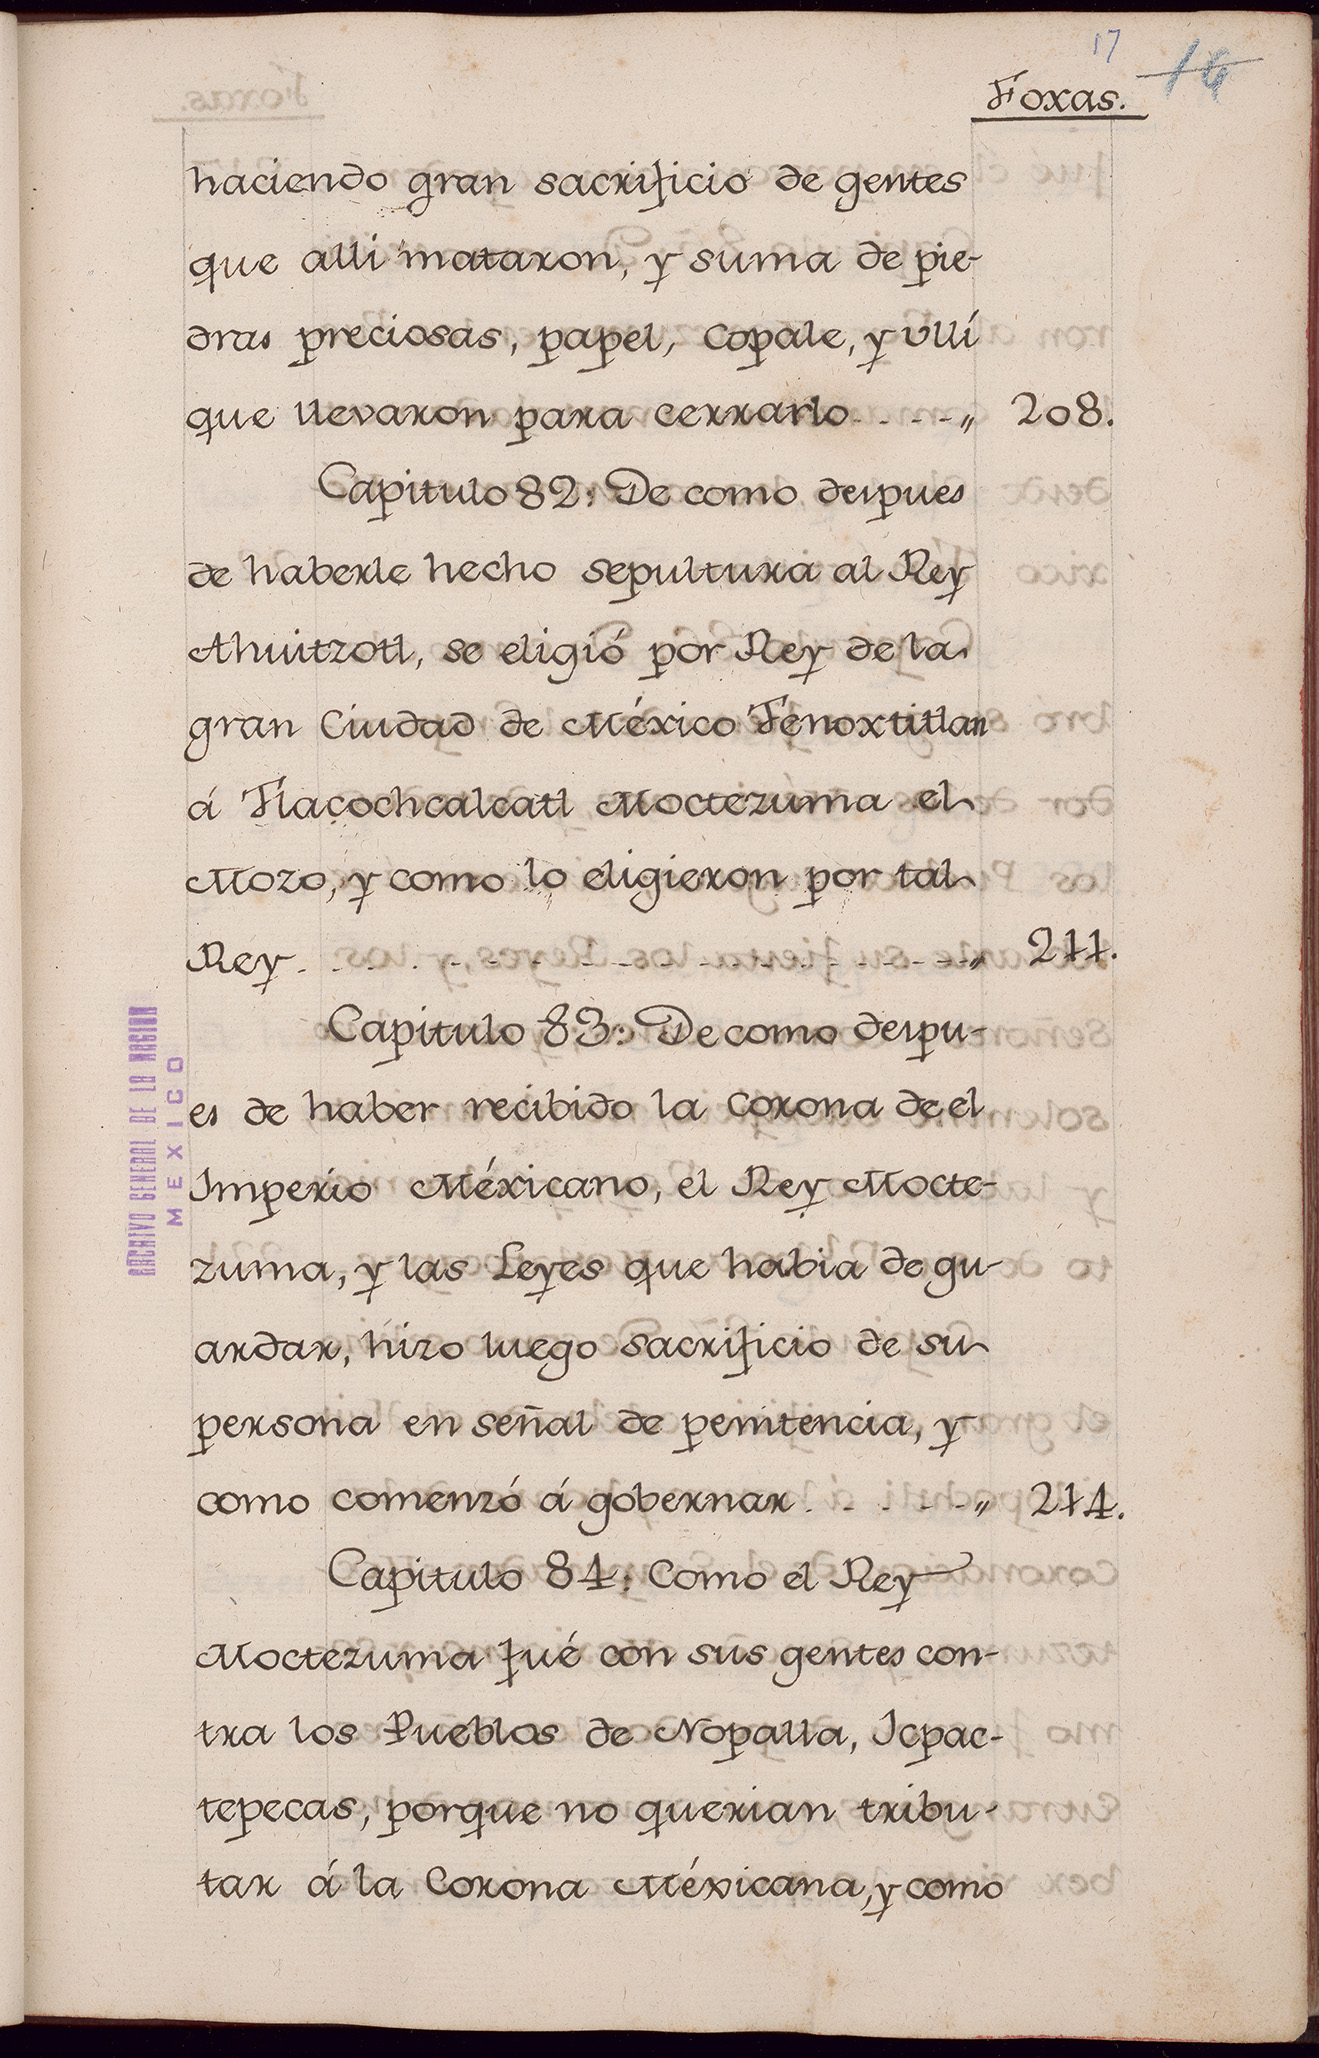 17 16
Foxas.
haciendo gran sacrificio de gentes
que alli mataron, y suma de pie-
dras preciosas, papel, copale, y ulli
que llevaron para cerrarlo - - - - „ 208.
Capitulo 82: De como despues
de haberle hecho sepultura al Rey
Ahuitzotl, se eligió por Rey de la
gran Ciudad de México Tenoxtitlan
á Tlaçochcalcatl Moctezuma el
Mozo, y como lo eligieron por tal
Rey - - - - - - - - - - - - - - - - „ 211.
Capitulo 83: De como despu-
es de haber recibido la Corona de el
Imperio Méxicano, el Rey Mocte-
zuma, y las Leyes que habia de gu-
ardar, hizo luego sacrificio de su
persona en señal de penitencia, y
como comenzó á gobernar - - - - - „ 214.
Capitulo 84: Como el Rey
Moctezuma fué con sus gentes con-
tra los Pueblos de Nopalla, Icpac-
tepecas, porque no querian tribu-
tar á la Corona Méxicana, y como
ARCHIVO GENERAL DE LA NACION
MEXICO